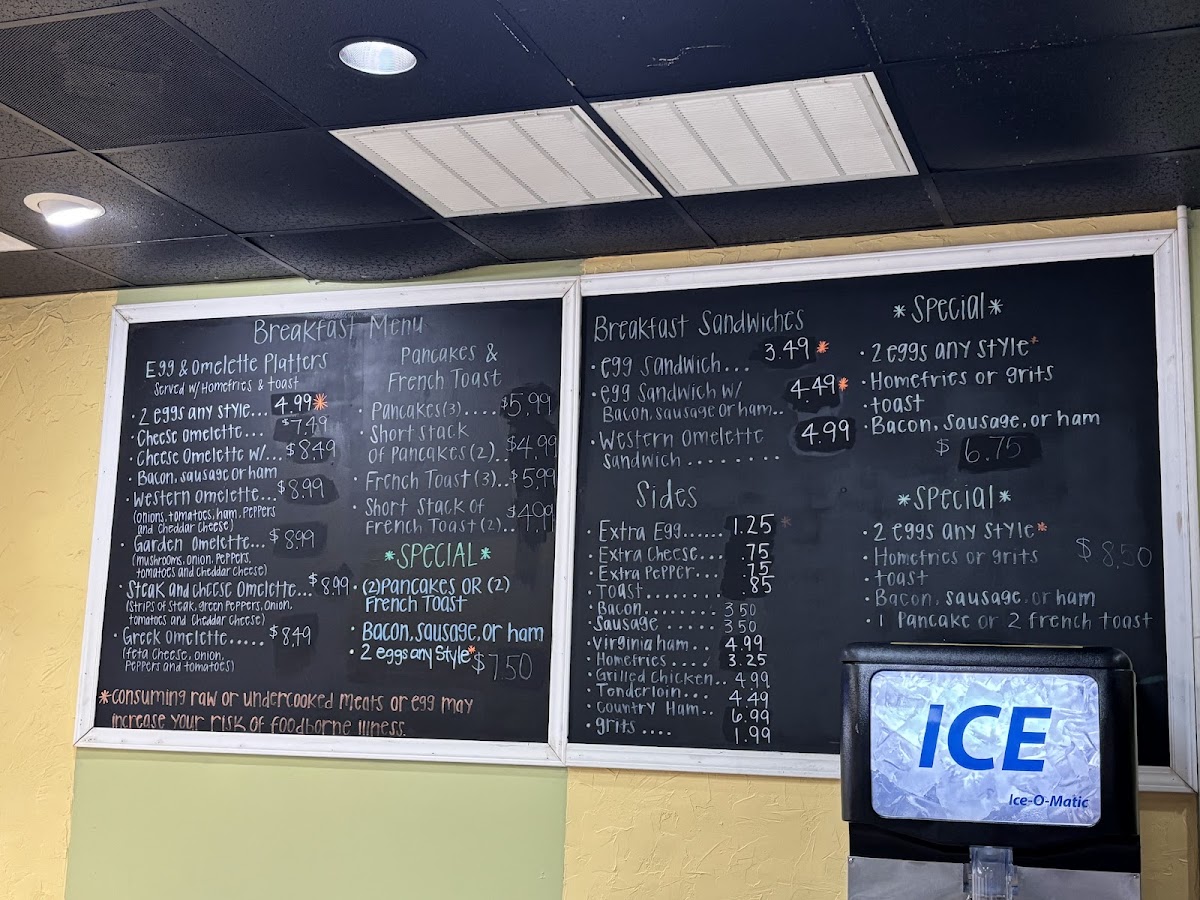 Breakfast Menu
Egg & Omelette Platters
Served w/Homefries & toast
• 2 eggs any style... 4.99*
• Cheese omelette.... $7.49
• Cheese Omelette w/... $8.49
Bacon, sausage or ham
• Western Omelette... $8.99
(onions, tomatoes, ham, peppers
and cheddar cheese)
• Garden Omelette... $8.99
(mushrooms, onion, peppers,
tomatoes and cheddar cheese)
• Steak and cheese omelette... $8.99
(strips of steak, green peppers, onion,
tomatoes and cheddar cheese)
• Greek omelette..... $8.49
(feta cheese, onion,
peppers and tomatoes)
Pancakes &
French Toast
• Pancakes(3).... $5.99
• Short stack
of pancakes(2).. $4.99
• French Toast(3)... $5.99
• Short stack of
French toast(2).. $4.99
*SPECIAL*
• (2) Pancakes OR (2)
French Toast
• Bacon, sausage, or ham
• 2 eggs any style* $7.50
*consuming raw or undercooked meats or egg may
increase your risk of foodborne illness.
Breakfast Sandwiches
• egg sandwich... 3.49*
• egg sandwich w/ 4.49*
Bacon, sausage or ham..
• Western omelette 4.99
sandwich ........
Sides
• Extra Egg...... 1.25*
• Extra cheese... .75
• Extra Pepper... .75
• Toast........ .85
• Bacon........ 3.50
• Sausage ..... 3.50
• Virginia ham.. 4.99
• Homefries .... 3.25
• Grilled Chicken.. 4.99
• Tenderloin... 4.49
• Country Ham.. 6.99
• grits .... 1.99
*Special*
• 2 eggs any style*
• Homefries or grits
• toast
• Bacon, sausage, or ham
$ 6.75
*special*
• 2 eggs any style*
• Homefries or grits $8.50
• toast
• Bacon, sausage, or ham
• 1 pancake or 2 french toast
ICE
Ice-O-Matic